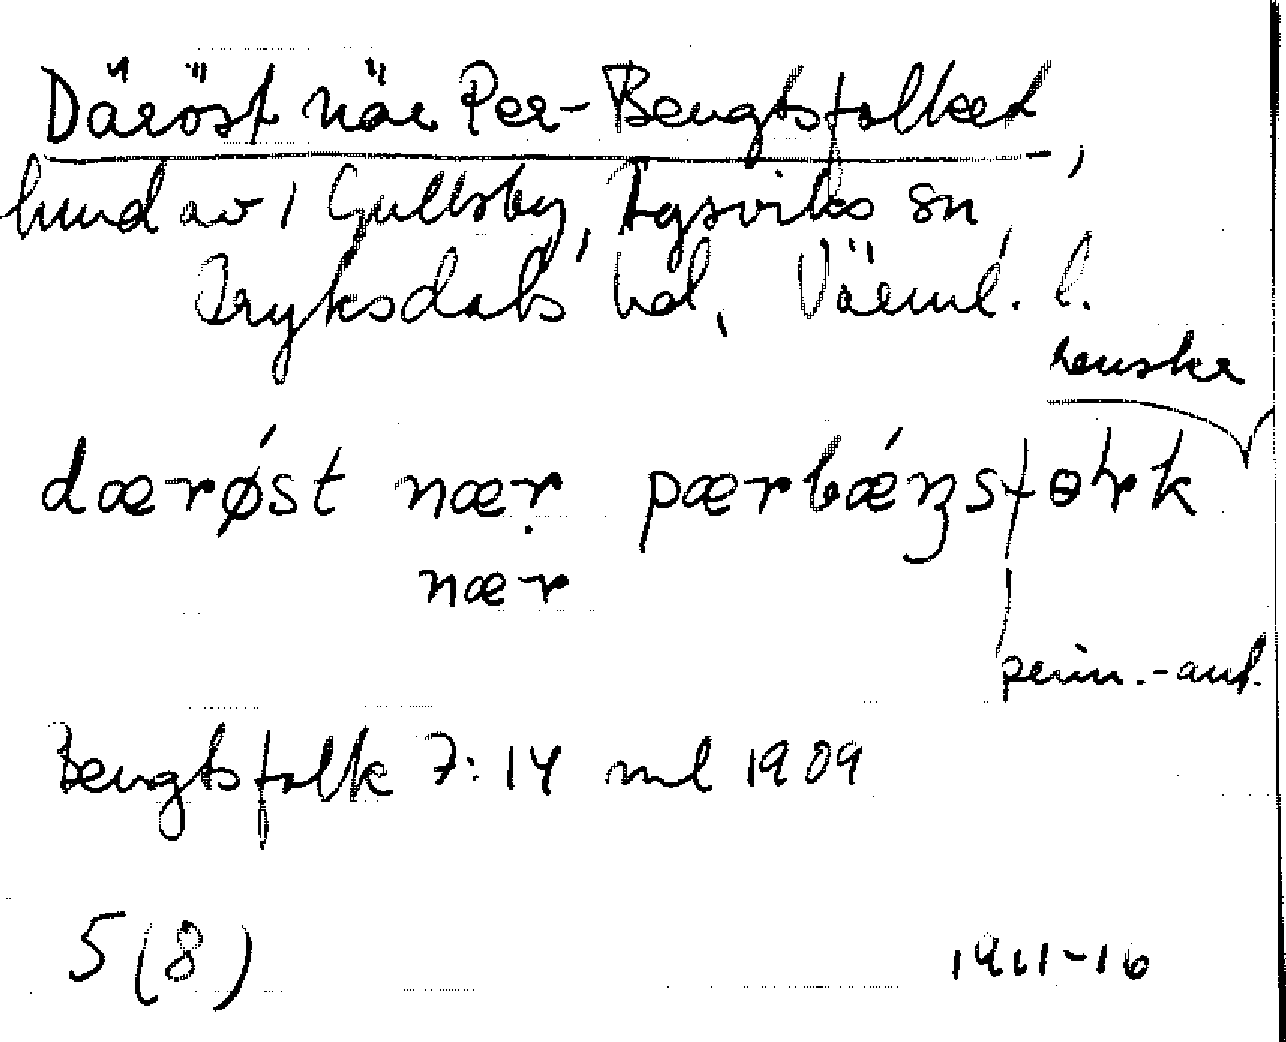 Däröst när Per-Bengtsfolket,
hmd av i Gullsby, Lysviks sn,
Fryksdals hd, Värml. l.
dærøst nær pærbǽŋsfɵrk
nær
penn.-ant.
Bengtsfolk 7:14 ml 1909
5(8) 1911-16